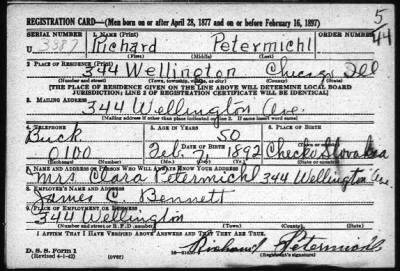 REGISTRATION CARD—(Men born on or after April 28, 1877 and on or before February 16, 1897)
5
44
SERIAL NUMBER 1. NAME (Print) ORDER NUMBER
U 3387 Richard Petermichl
(First) (Middle) (Last)
2. PLACE OF RESIDENCE (Print)
344 Wellington Chicago Ill
(Number and street) (Town, township, village, or city) (County) (State)
[THE PLACE OF RESIDENCE GIVEN ON THE LINE ABOVE WILL DETERMINE LOCAL BOARD
JURISDICTION; LINE 2 OF REGISTRATION CERTIFICATE WILL BE IDENTICAL]
3. MAILING ADDRESS
344 Wellington Ave.
[Mailing address if other than place indicated on line 2. If same insert word same]
4. TELEPHONE 5. AGE IN YEARS 6. PLACE OF BIRTH
Buck 50
DATE OF BIRTH (Town or county)
0100 Feb. 7 1892 Checko Slovakia
(Exchange) (Number) (Mo.) (Day) (Yr.) (State or country)
7. NAME AND ADDRESS OF PERSON WHO WILL ALWAYS KNOW YOUR ADDRESS
Mrs Clara Petermichl 344 Wellington Ave.
8. EMPLOYER'S NAME AND ADDRESS
James C. Bennett
9. PLACE OF EMPLOYMENT OR BUSINESS
344 Wellington
(Number and street or R. F. D. number) (Town) (County) (State)
I AFFIRM THAT I HAVE VERIFIED ABOVE ANSWERS AND THAT THEY ARE TRUE.
D. S. S. Form 1
(Revised 4-1-42) (over) Richard Petermichl
(Registrant's signature)